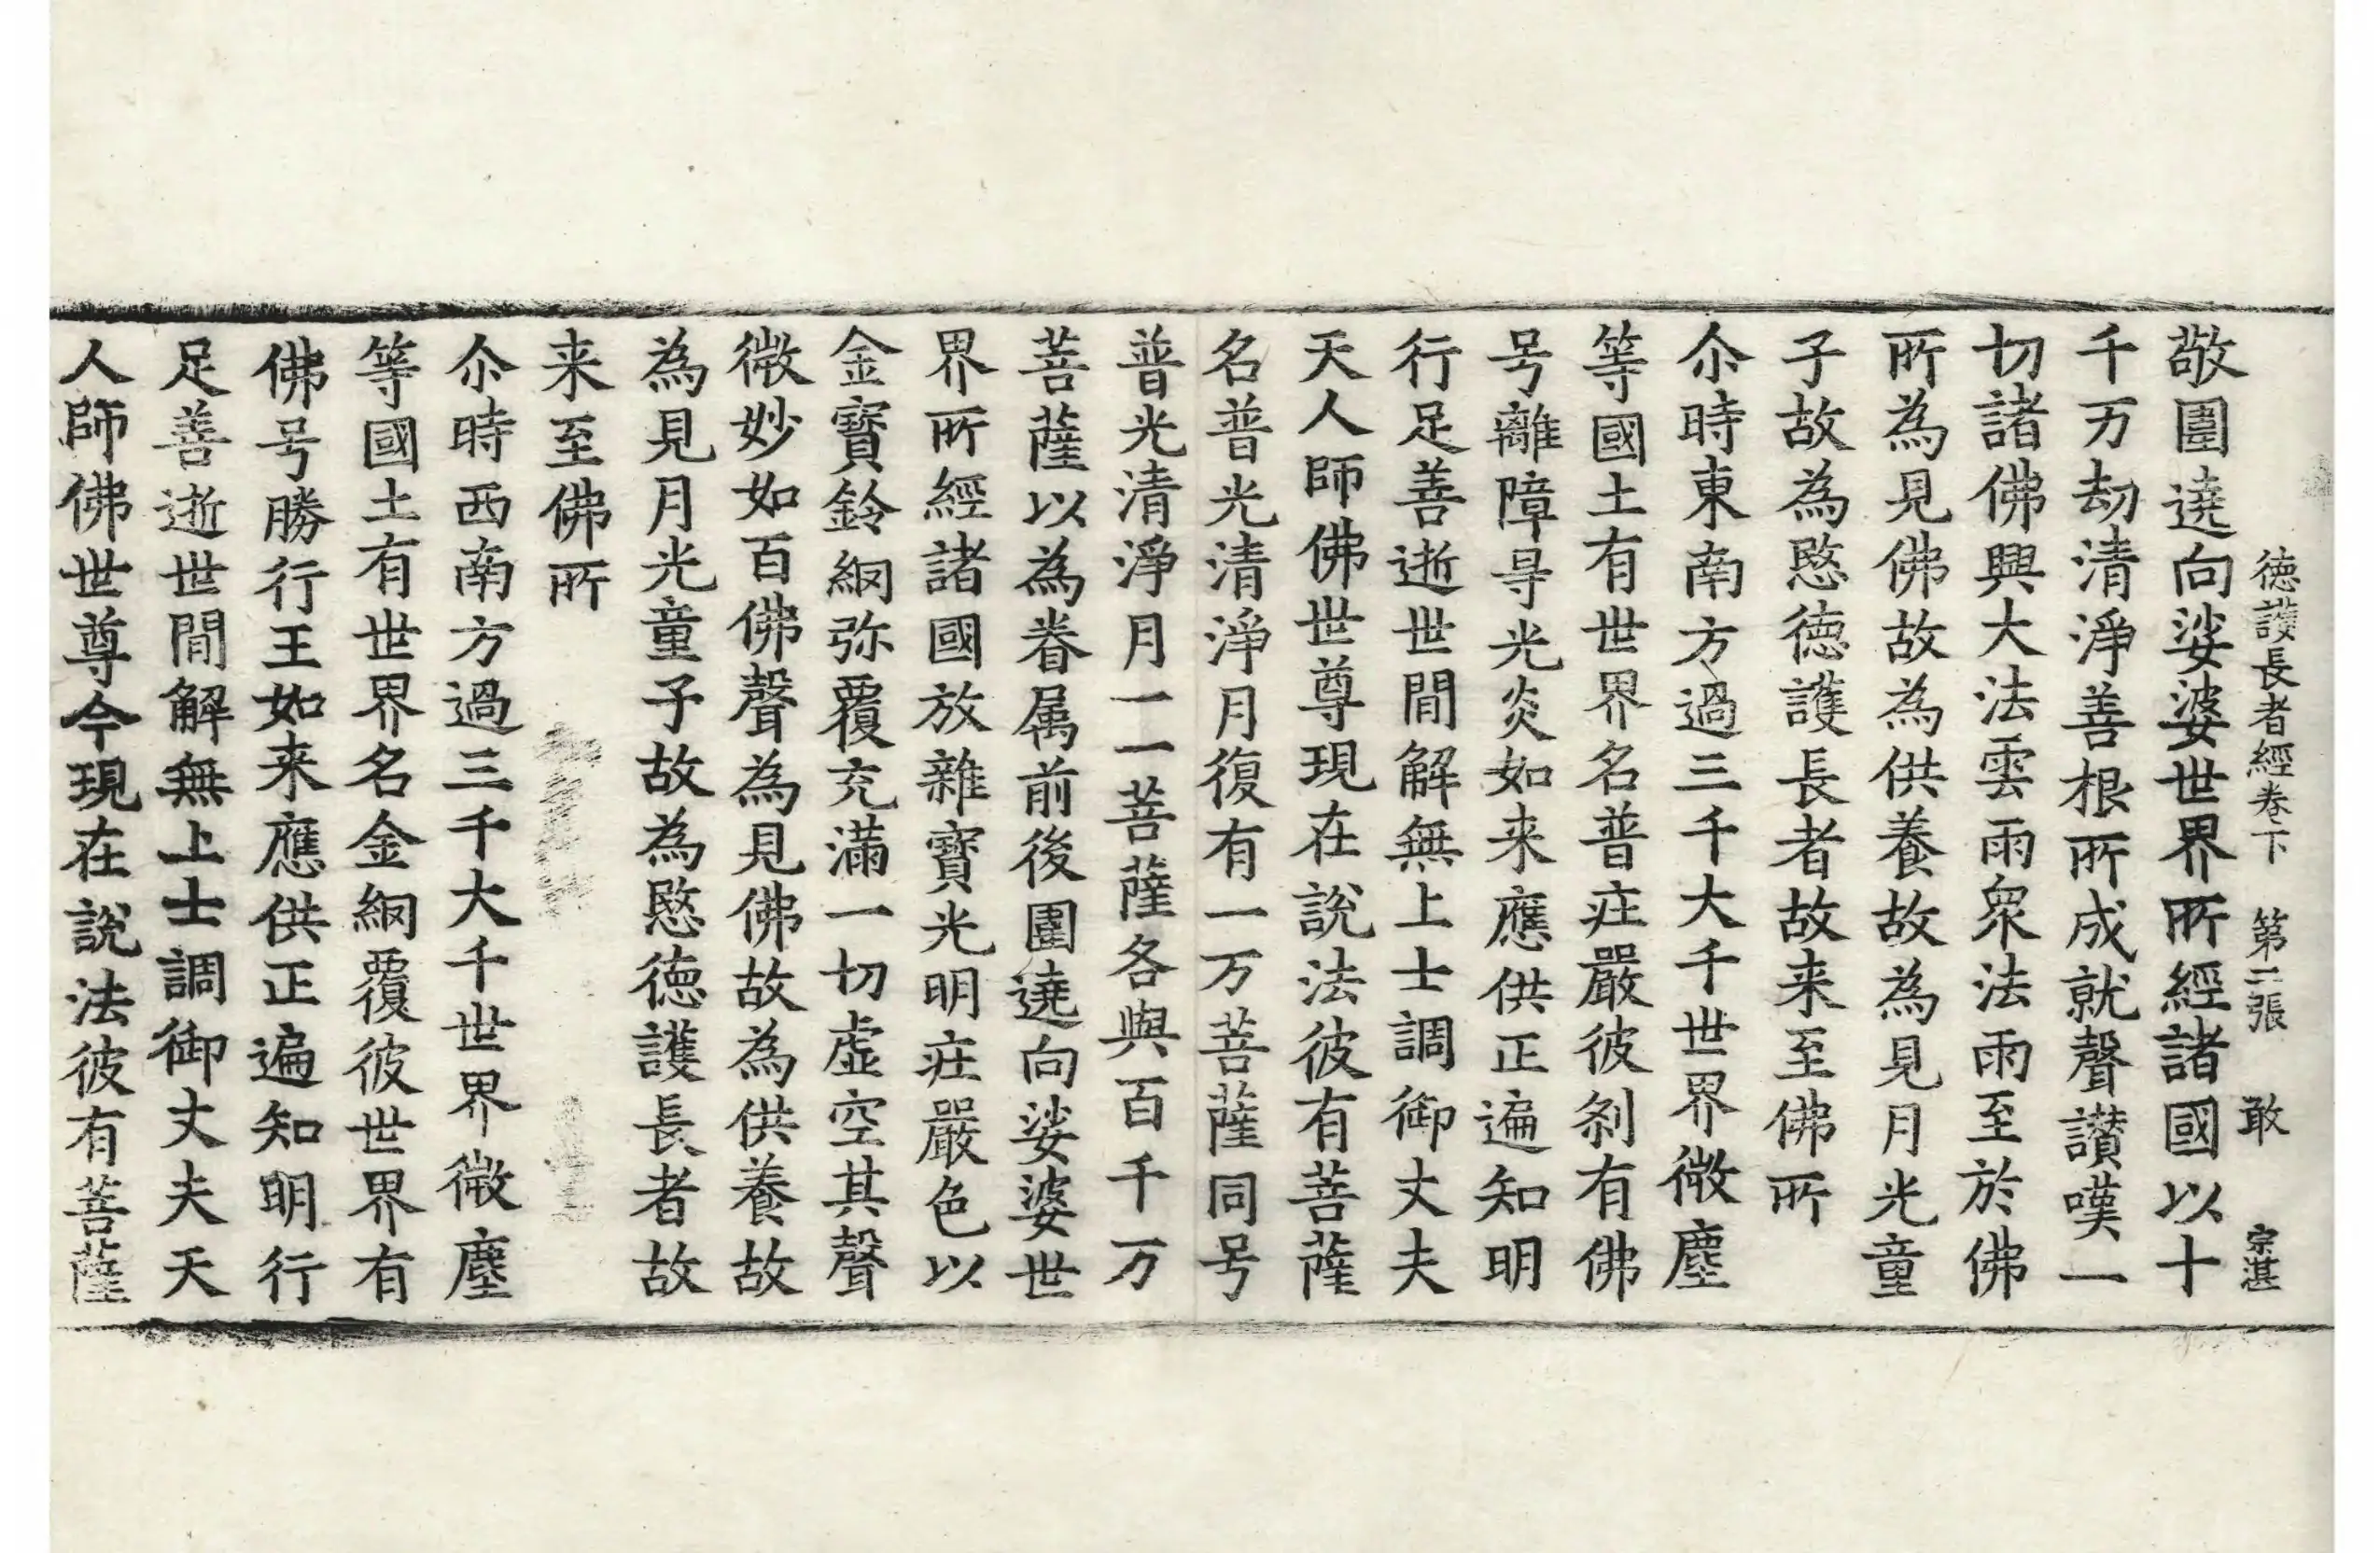 德護長者經卷下 第二張 敢 宗湛
敬圍遶向娑婆世界所經諸國以十
千万劫清淨善根所成就聲讃嘆一
切諸佛興大法雲雨衆法雨至於佛
所為見佛故為供養故為見月光童
子故為愍德護長者故来至佛所
尒時東南方過三千大千世界微塵
等國土有世界名普庄嚴彼刹有佛
号離障㝵光炎如来應供正遍知明
行足善逝世間解無上士調御丈夫
天人師佛世尊現在說法彼有菩薩
名普光清淨月復有一万菩薩同号
普光清淨月一一菩薩各與百千万
菩薩以為眷属前後圍遶向娑婆世
界所經諸國放雜寶光明庄嚴色以
金寶鈴網弥覆充滿一切虛空其聲
微妙如百佛聲為見佛故為供養故
為見月光童子故為愍德護長者故
来至佛所
尒時西南方過三千大千世界微塵
等國土有世界名金網覆彼世界有
佛号勝行王如来應供正遍知明行
足善逝世間解無上士調御丈夫天
人師佛世尊今現在說法彼有菩薩